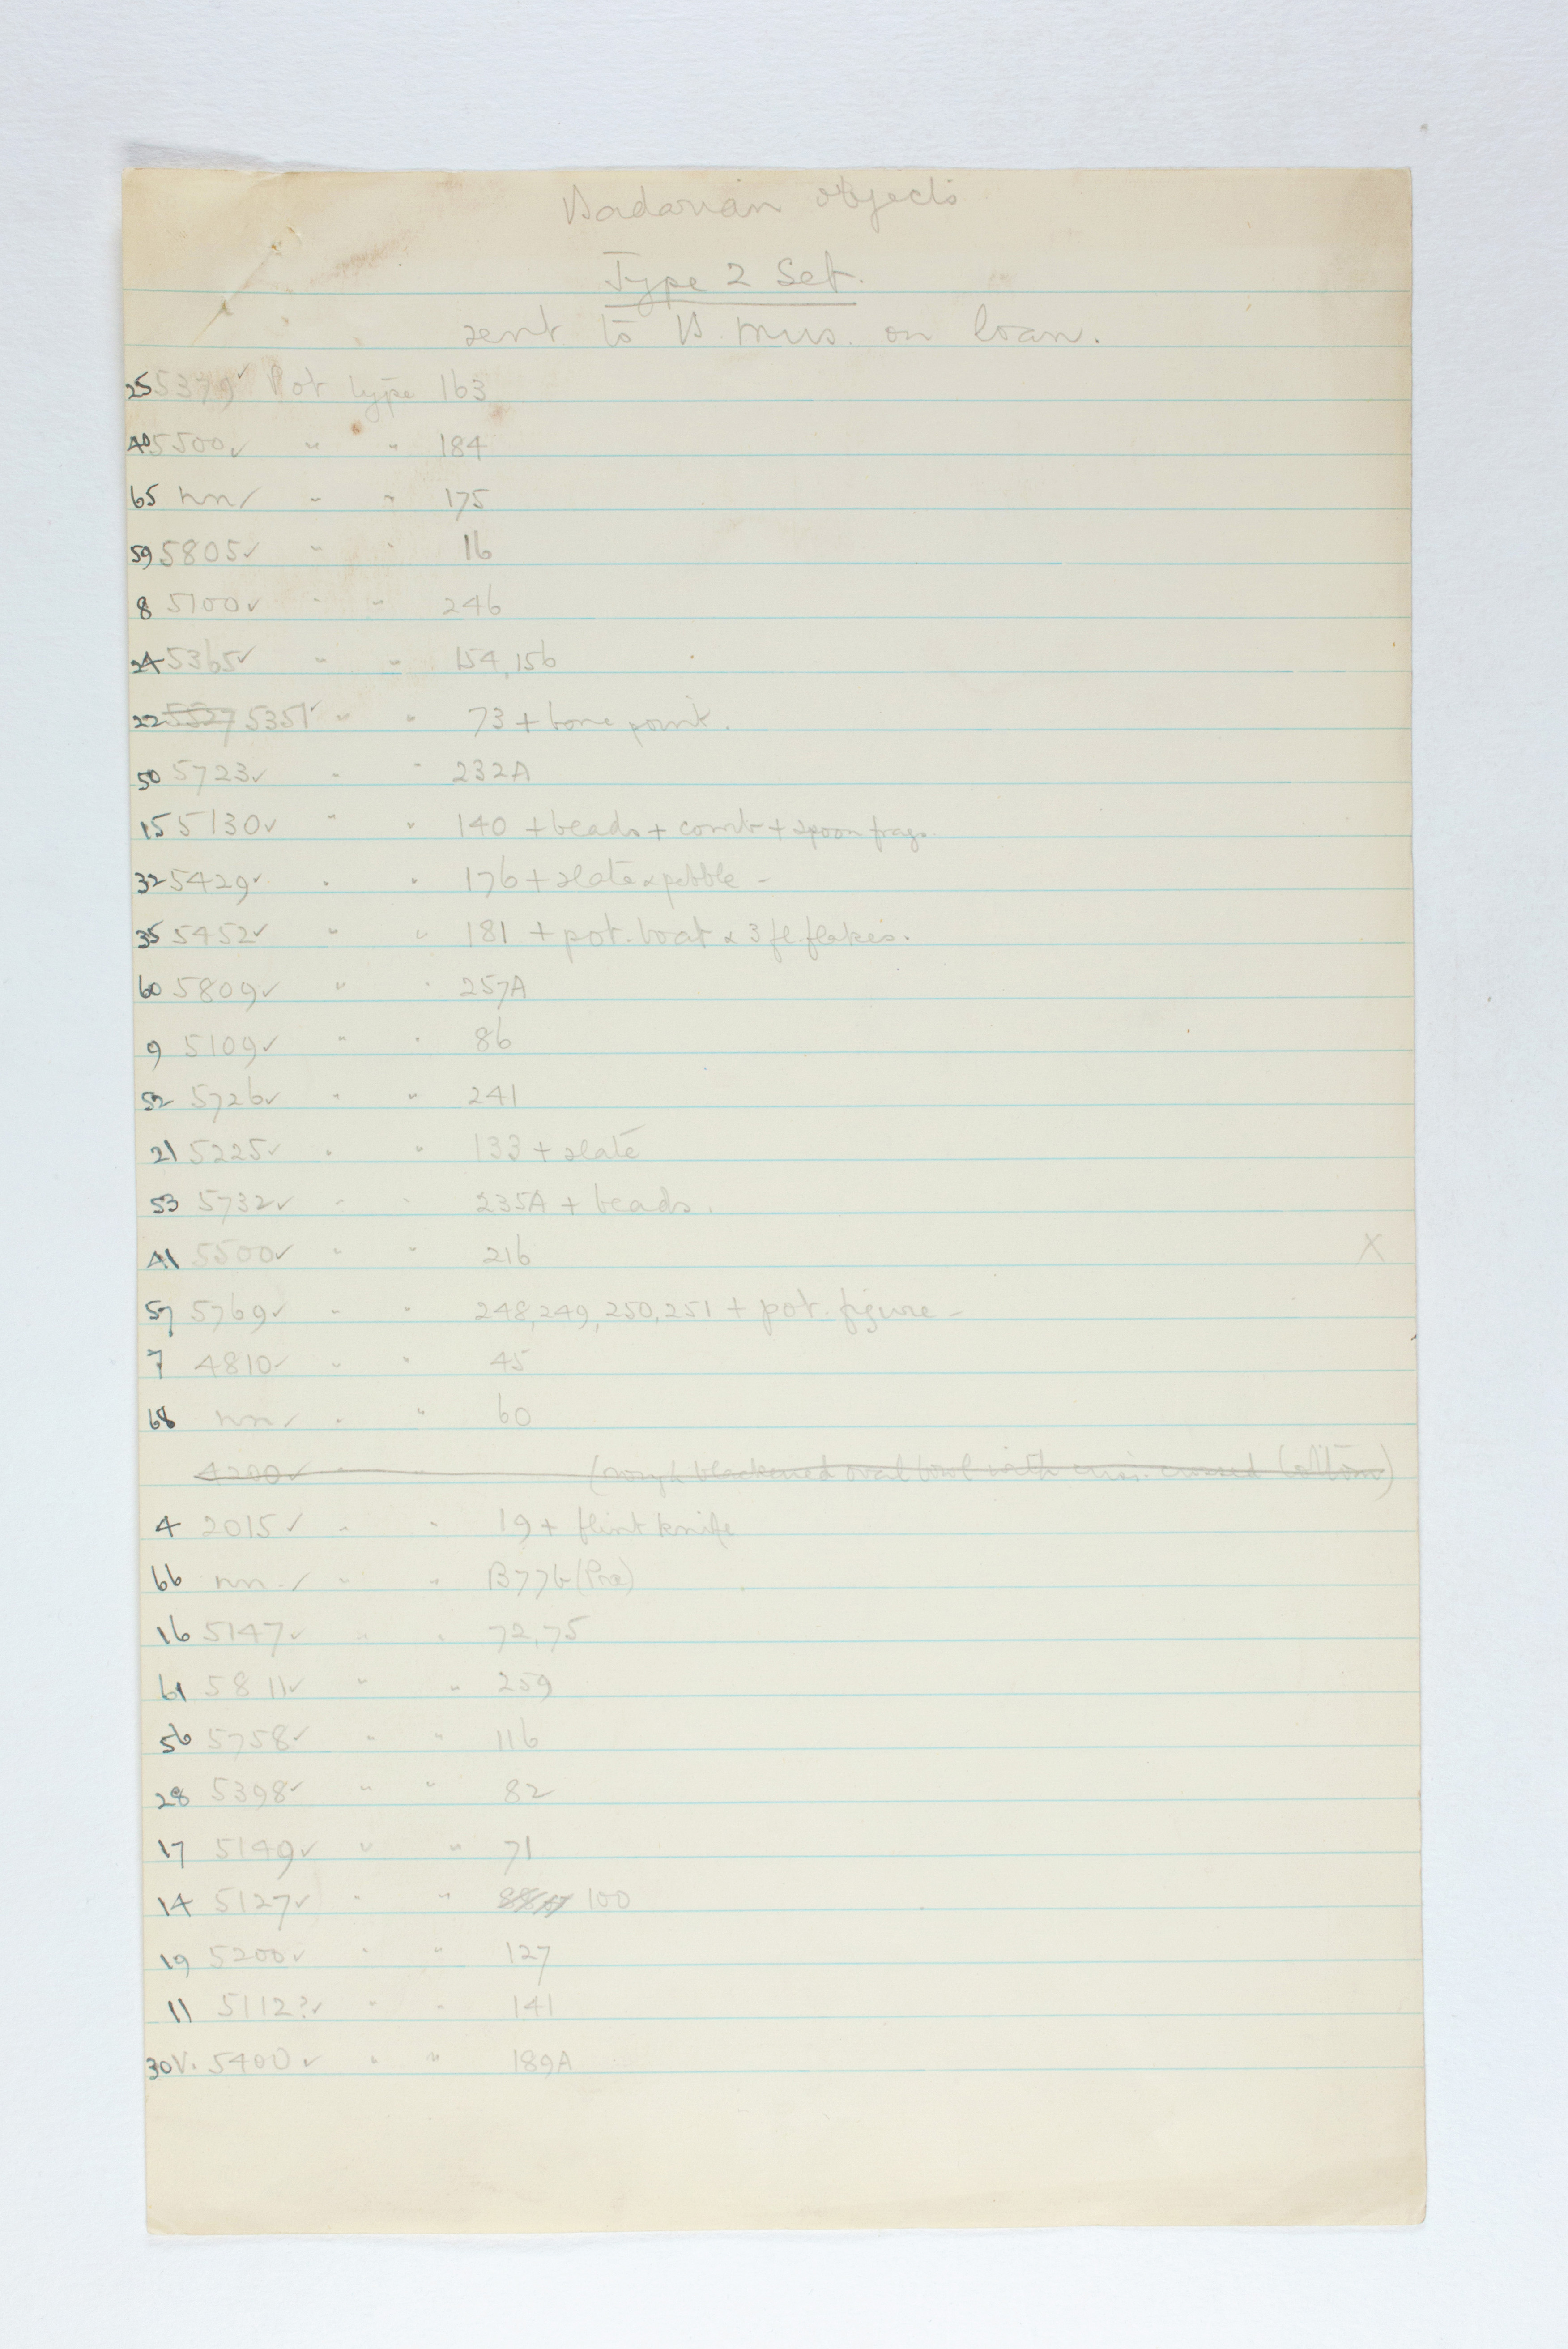 Badarian objects
Type 2 Set.
sent to B. Mus. on loan.
25 5379 ✓ Pot type 163
40 5500 ✓ " " 184
65 nn ✓ " " 175
59 5805 ✓ " " 16
8 5100 ✓ " " 246
24 5365 ✓ " " 154, 156
22 5527 5351 ✓ " " 73 + bone point.
50 5723 ✓ " " 232A
15 5130 ✓ " " 140 + beads + comb + spoon frags.
32 5429 ✓ " " 176 + slate & pebble -
35 5452 ✓ " " 181 + pot. boat & 3 fl. flakes.
60 5809 ✓ " " 257A
9 5109 ✓ " " 86
52 5726 ✓ " " 241
21 5225 ✓ " " 133 + slate
53 5732 ✓ " " 235A + beads.
41 5500 ✓ " " 216 X
57 5769 ✓ " " 248, 249, 250, 251 + pot. figure -
7 4810 ✓ " " 45
68 nn ✓ " " 60
4200 ✓ " " (rough blackened oval bowl with criss-crossed bottom)
4 2015 ✓ " " 19 + flint knife
66 nn. ✓ " " B77b (Pre)
16 5147 ✓ " " 72, 75
61 5811 ✓ " " 259
56 5758 ✓ " " 116
28 5398 ✓ " " 82
17 5149 ✓ " " 71
14 5127 ✓ " " 100
19 5200 ✓ " " 127
11 5112? ✓ " " 141
30 V. 5400 ✓ " " 189A